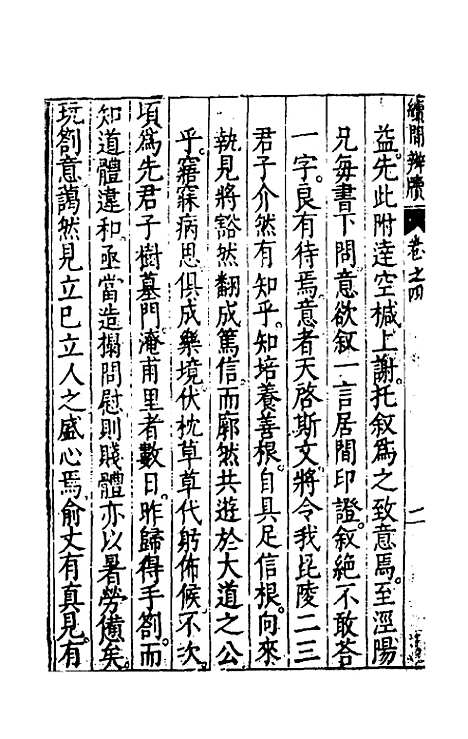 續問辨牘 卷之四 二
益先此附達空椷上謝托叙為之致意焉至涇陽
兄每書下問意欲叙一言居間印證叙絶不敢荅
一字良有待焉意者天啓斯文將令我毘陵二三
君子介然有知乎知培養善根自具足信根向來
執見將豁然翻成篤信而廓然共遊於大道之公
乎寤寐病思俱成樂境伏枕草草代躬佈候不次
頃為先君子樹墓門淹甫里者數日昨歸得手劄而
知道體違和亟當造搨問慰則賤體亦以暑勞憊矣
玩劄意藹然見立已立人之盛心焉俞丈有真見有